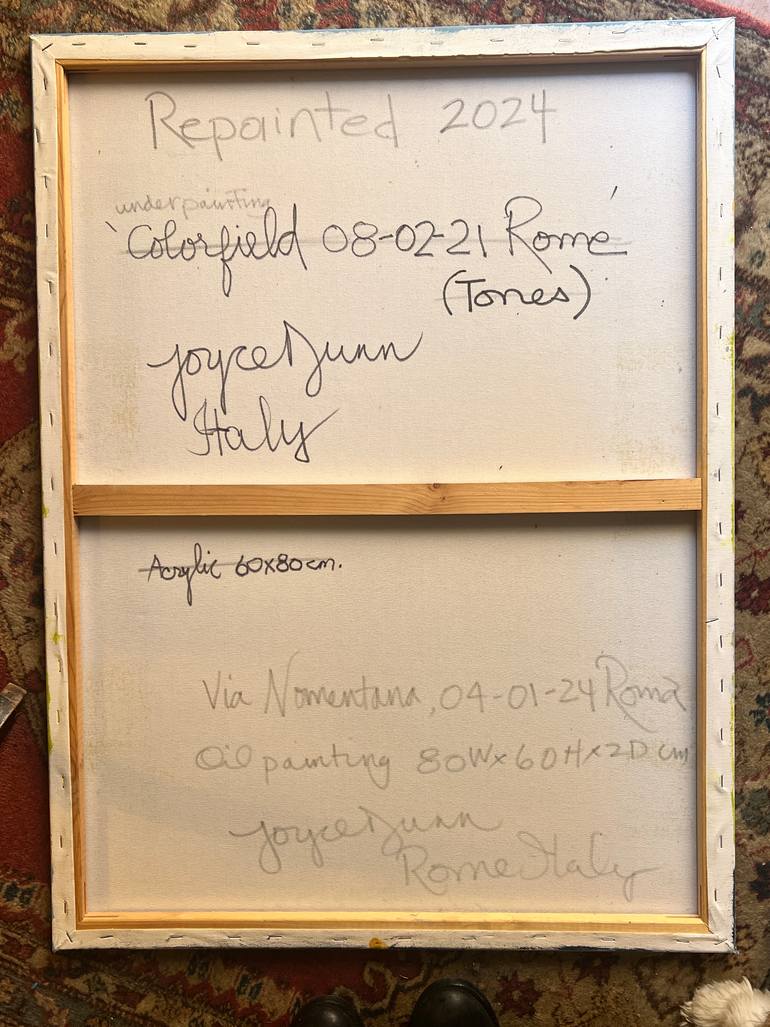 Repainted 2024
underpainting
'Colorfield 08-02-21 Rome'
(Tones)
Joyce Dunn
Italy
Acrylic 60x80cm.
Via Nomentana, 04-01-24 Roma
Oil painting 80Wx60Hx2D cm
Joyce Dunn
Rome Italy